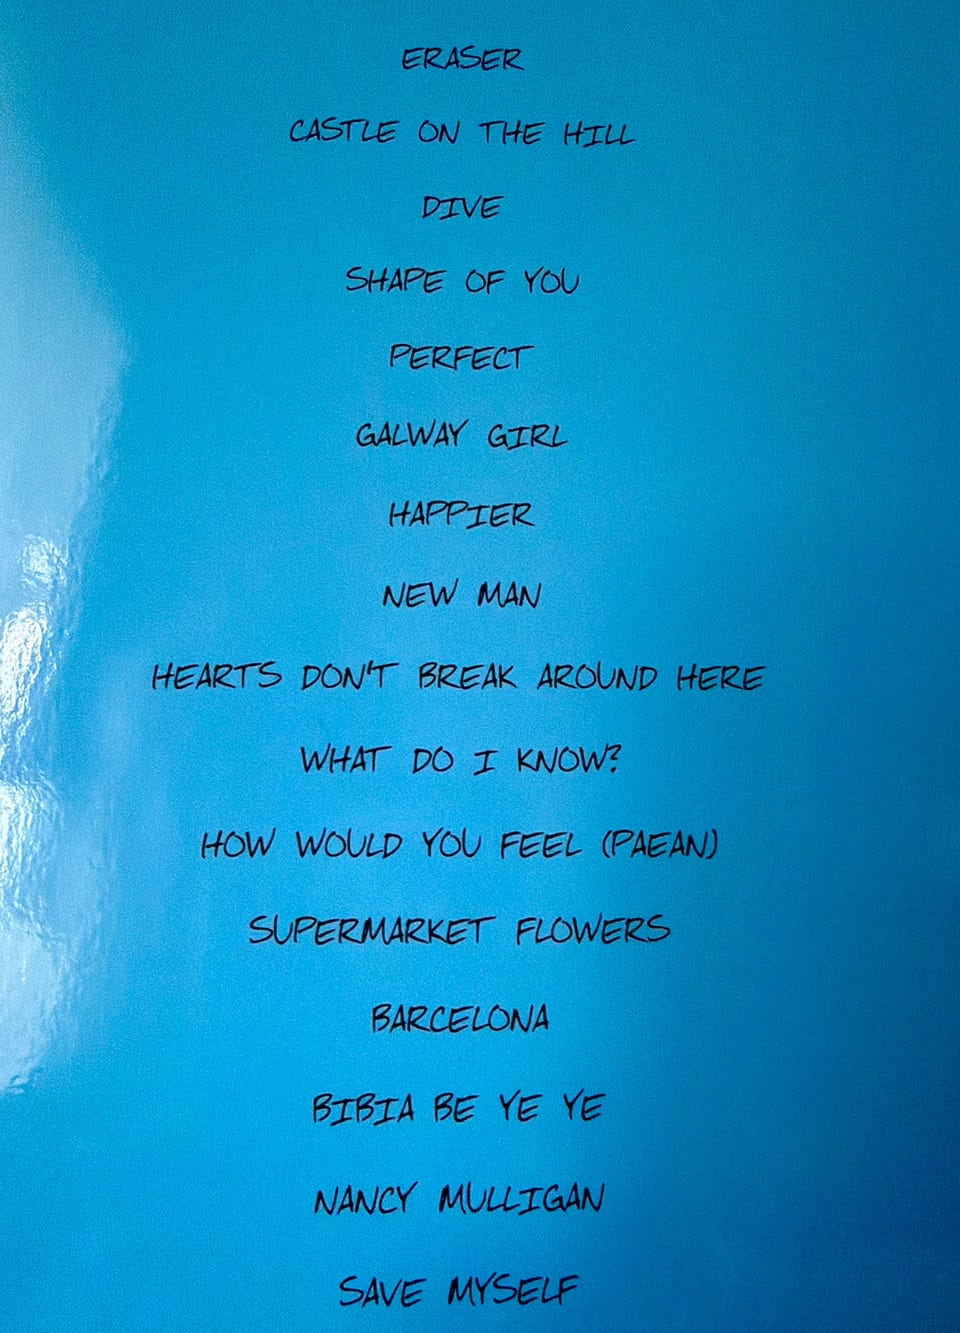 ERASER
CASTLE ON THE HILL
DIVE
SHAPE OF YOU
PERFECT
GALWAY GIRL
HAPPIER
NEW MAN
HEARTS DON'T BREAK AROUND HERE
WHAT DO I KNOW?
HOW WOULD YOU FEEL (PAEAN)
SUPERMARKET FLOWERS
BARCELONA
BIBIA BE YE YE
NANCY MULLIGAN
SAVE MYSELF